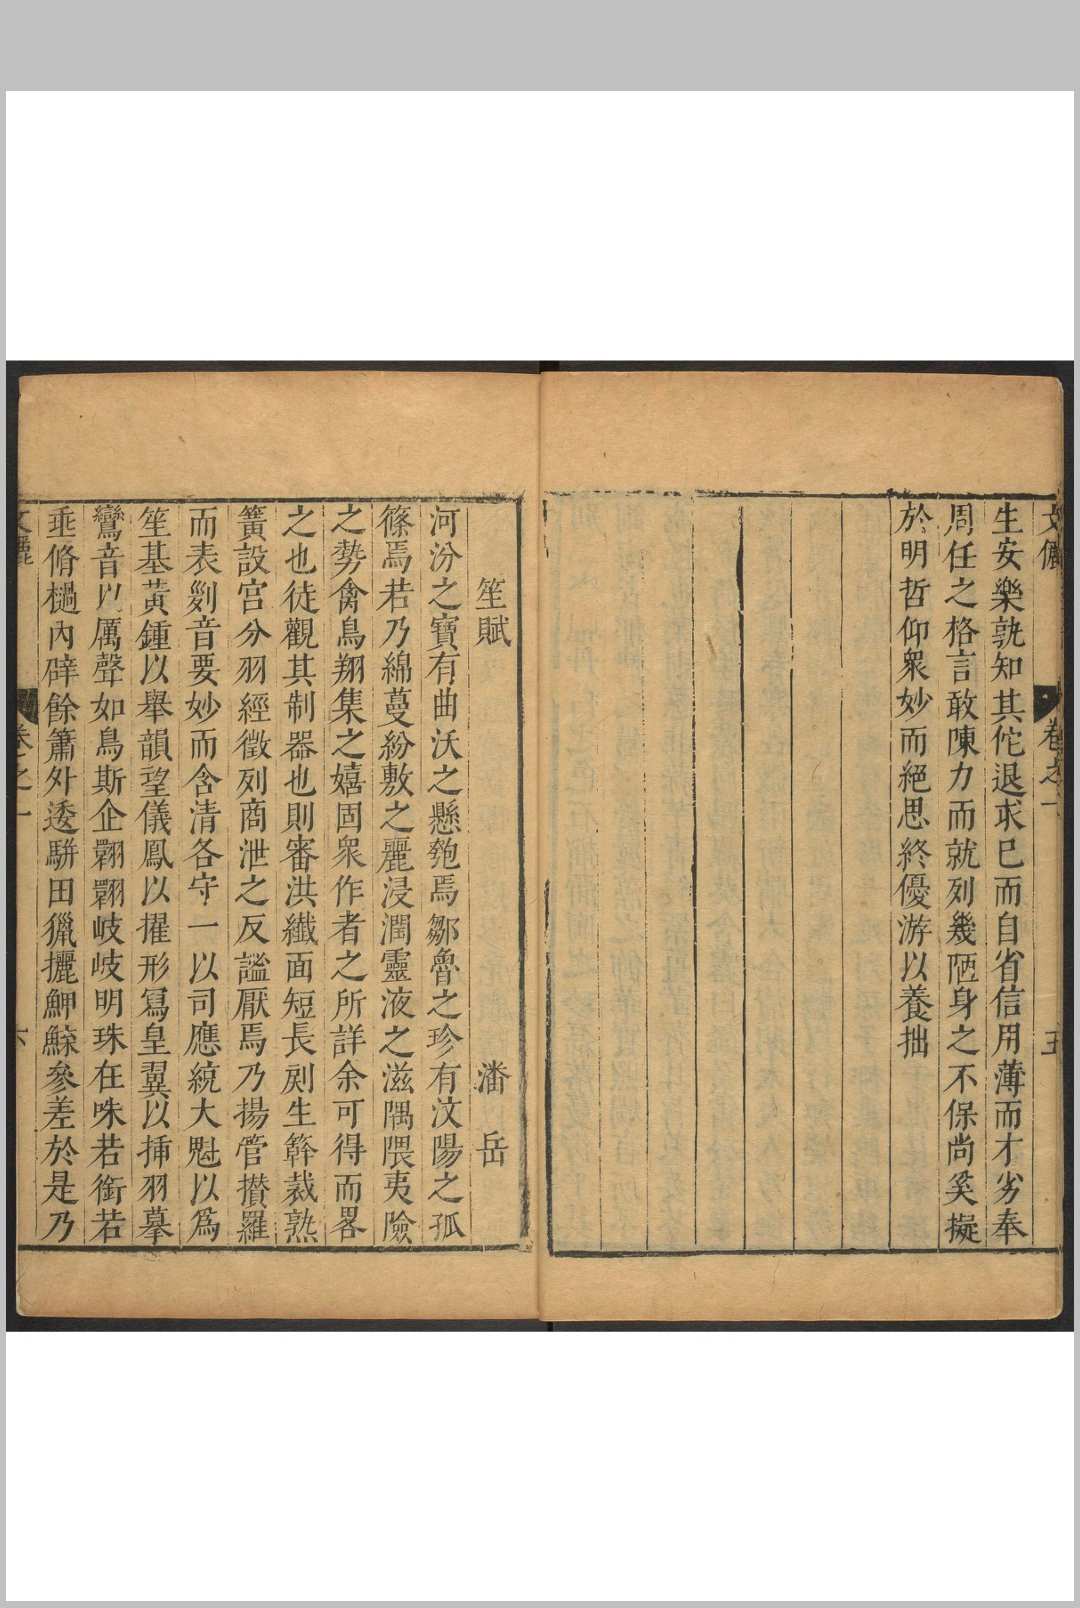 文儷
卷之一
五
生安樂孰知其佗退求己而自省信用薄而才劣奉
周任之格言敢陳力而就列幾陋身之不保尚奚擬
於明哲仰衆妙而絕思終優游以養拙
笙賦
潘岳
河汾之寶有曲沃之懸匏焉鄒魯之珍有汶陽之孤
篠焉若乃綿蔓紛敷之麗浸潤靈液之滋隅隈夷險
之勢禽鳥翔集之嬉固衆作者之所詳余可得而畧
之也徒觀其制器也則審洪纖面短長剫生簳裁熟
簧設宮分羽經徵列商泄之反謐厭焉乃揚管攅羅
而表劉音要妙而含清各守一以司應統大魁以爲
笙基黃鍾以舉韻望儀鳳以擢形寫皇翼以揷羽摹
鸞音以厲聲如鳥斯企翾翾岐岐明珠在咮若銜若
垂脩檛內辟餘簫外逶駢田獵攦魻鰈參差於是乃
文儷
卷之一
六